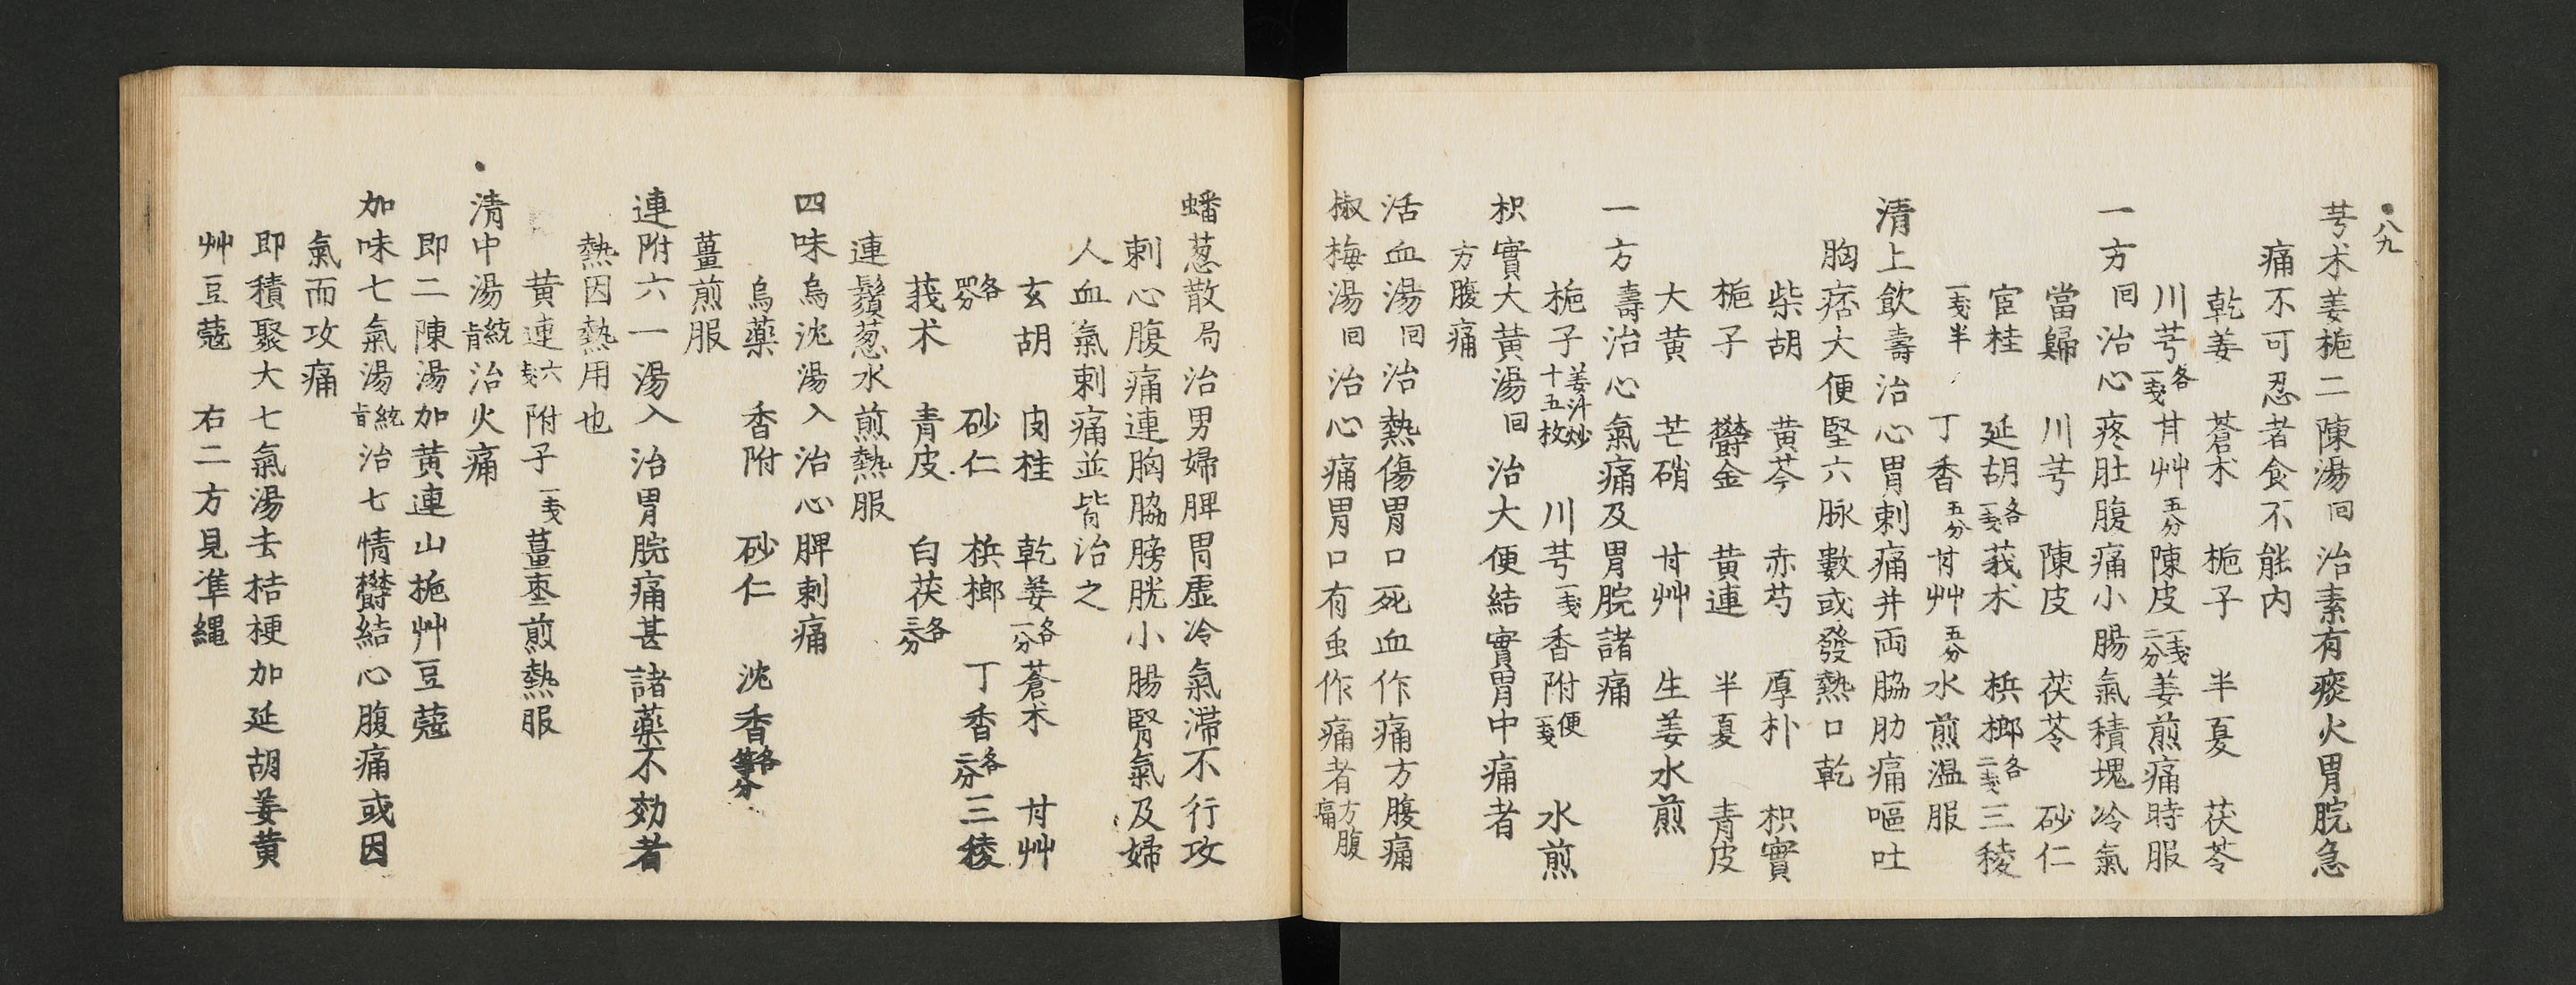 八九
芎朮姜梔二陳湯回治素有痰火胃脘急
痛不可忍者食不能内
乾姜 蒼朮 梔子 半夏 茯苓
川芎各一戔 甘艸五分 陳皮一戔二分 姜煎痛時服
一方回治心疼肚腹痛小腸氣積塊冷氣
當歸 川芎 陳皮 茯苓 砂仁
官桂 延胡各一戔 莪朮 梹榔各二戔 三稜
一戔半 丁香五分 甘艸五分 水煎温服
清上飲壽治心胃刺痛并両脇肋痛嘔吐
胸痞大便堅六脉數或發熱口乾
柴胡 黄芩 赤芍 厚朴 枳實
梔子 欝金 黄連 半夏 青皮
大黄 芒硝 甘艸 生姜水煎
一方壽治心氣痛及胃脘諸痛
梔子姜汁炒十五枚 川芎一戔 香附便一戔 水煎
枳實大黄湯回治大便結實胃中痛者
方腹痛
活血湯回治熱傷胃口死血作痛方腹痛
椒梅湯回治心痛胃口有虫作痛者方腹痛
蟠葱散局治男婦脾胃虚冷氣滞不行攻
刺心腹痛連胸脇膀胱小腸腎氣及婦
人血氣刺痛並皆治之
玄胡 肉桂 乾姜各一分 蒼朮 甘艸
各四分 砂仁 梹榔 丁香各二分 三稜
莪朮 青皮 白茯各三分
連鬚葱水煎熱服
四味烏沈湯入治心脾刺痛
烏藥 香附 砂仁 沈香各等分
薑煎服
連附六一湯入治胃脘痛甚諸藥不効者
熱因熱用也
黄連六戔 附子一戔 薑棗煎熱服
清中湯統旨治火痛
即二陳湯加黄連山梔艸豆蔻
加味七氣湯統旨治七情欝結心腹痛或因
氣而攻痛
即積聚大七氣湯去桔梗加延胡姜黄
艸豆蔻 右二方見準繩